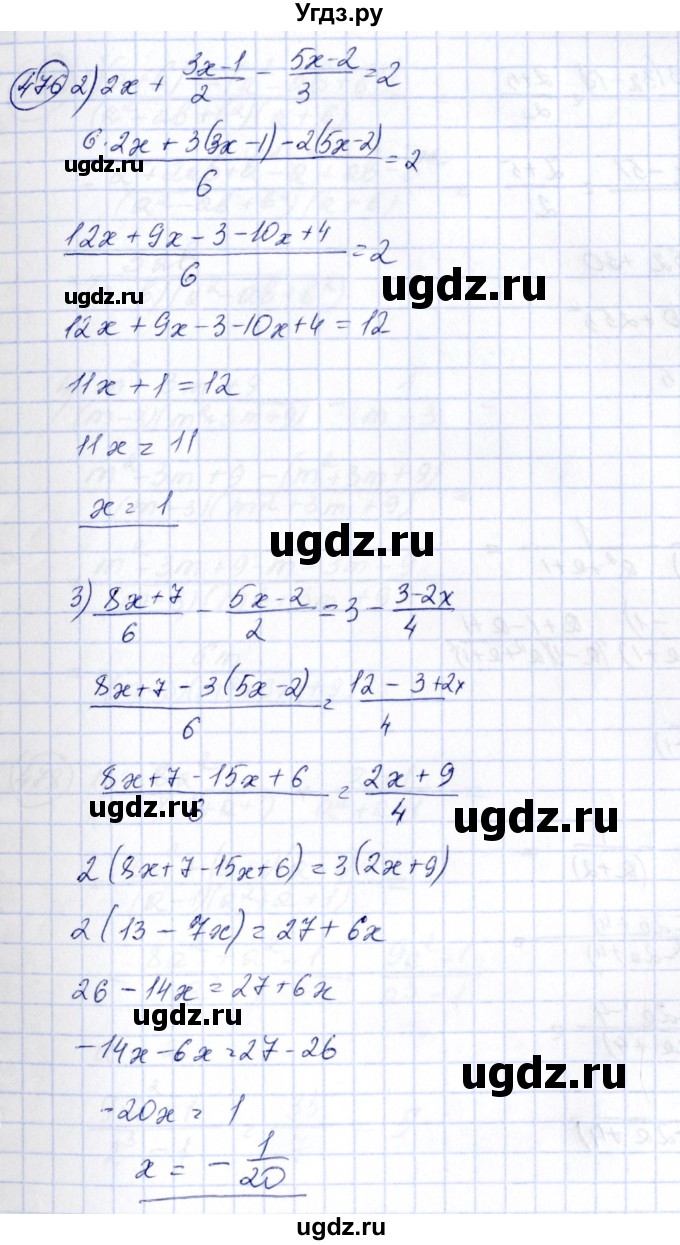 Угдз.ру
476 2) 2x + (3x-1)/2 - (5x-2)/3 = 2
(6·2x + 3(3x-1) - 2(5x-2))/6 = 2
ugdz.ru
(12x + 9x - 3 - 10x + 4)/6 = 2
ugdz.ru
ugdz.ru
12x + 9x - 3 - 10x + 4 = 12
11x + 1 = 12
11x = 11
x = 1
ugdz.ru
3) (8x+7)/6 - (5x-2)/2 = 3 - (3-2x)/4
(8x+7 - 3(5x-2))/6 = (12 - 3 + 2x)/4
(8x+7 - 15x + 6)/6 = (2x + 9)/4
ugdz.ru
ugdz.ru
2(8x+7-15x+6) = 3(2x+9)
2(13 - 7x) = 27 + 6x
26 - 14x = 27 + 6x
ugdz.ru
-14x - 6x = 27 - 26
ugdz.ru
-20x = 1
x = - 1/20
ugdz.ru